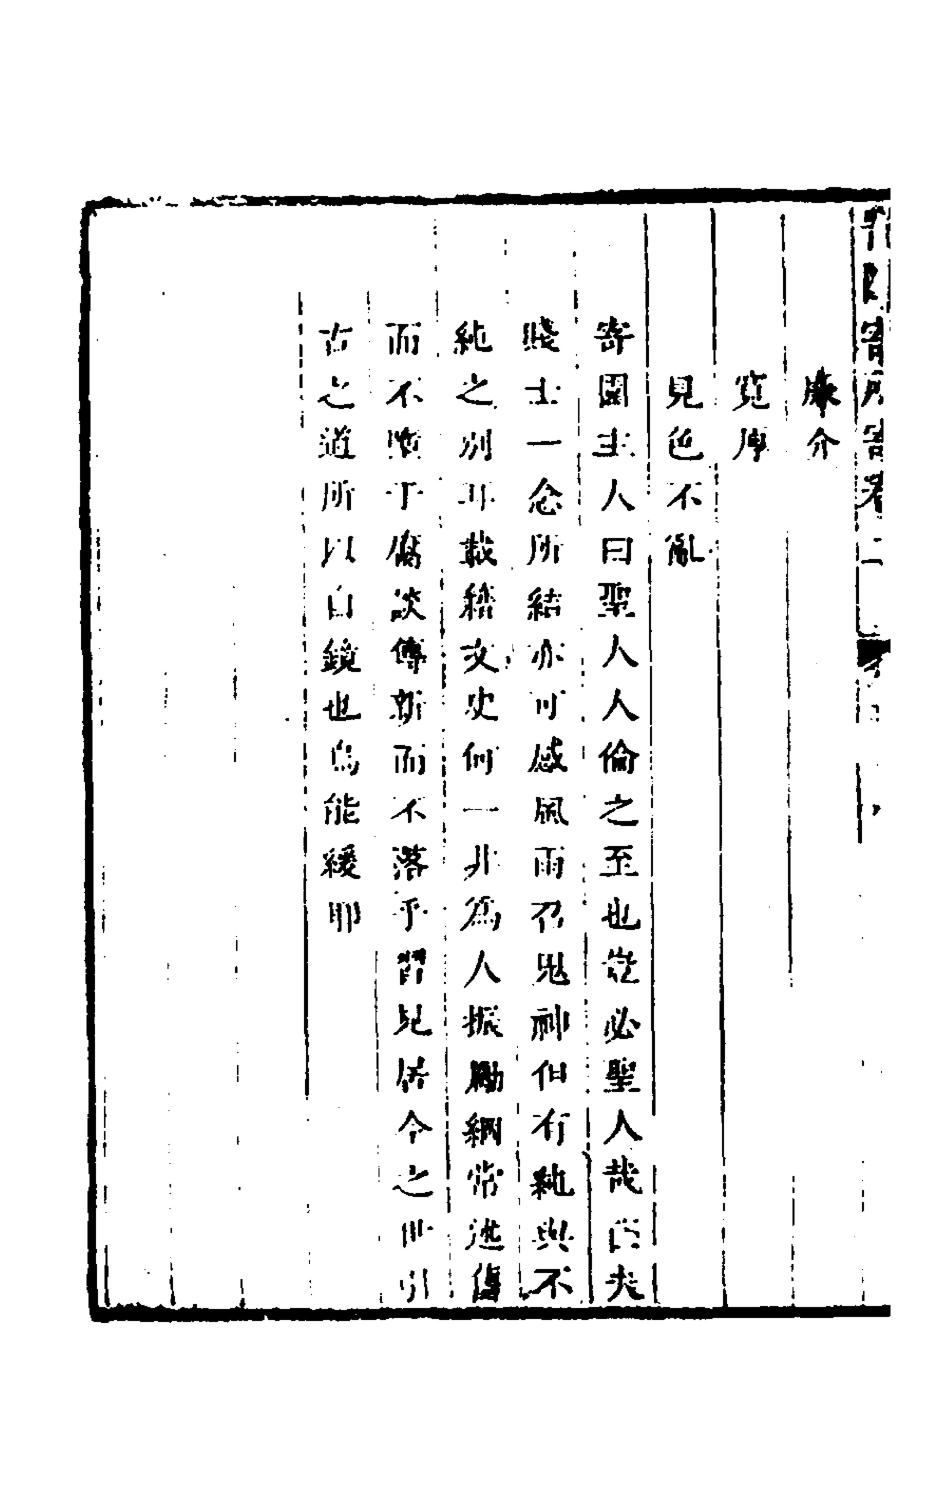 寄園寄所寄卷二
廉介
寬厚
見色不亂
寄園主人曰聖人人倫之至也豈必聖人哉匹夫
賤士一念所結亦可感風雨召鬼神但有純與不
純之別耳載稽文史何一非為人振勵綱常述舊
而不墮于腐談傳新而不落乎習見居今之世引
古之道所以自鏡也烏能緩耶